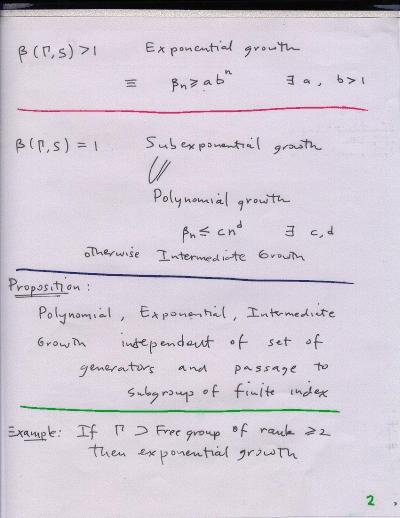 β(Γ,S)>1 Exponential growth
≡ βₙ ≥ abⁿ ∃ a, b>1
β(Γ,S) = 1 Subexponential growth
Polynomial growth
βₙ ≤ cnᵈ ∃ c,d
otherwise Intermediate Growth
Proposition:
Polynomial, Exponential, Intermediate
Growth independent of set of
generators and passage to
subgroup of finite index
Example: If Γ ⊃ Free group of rank ≥2
then exponential growth
2